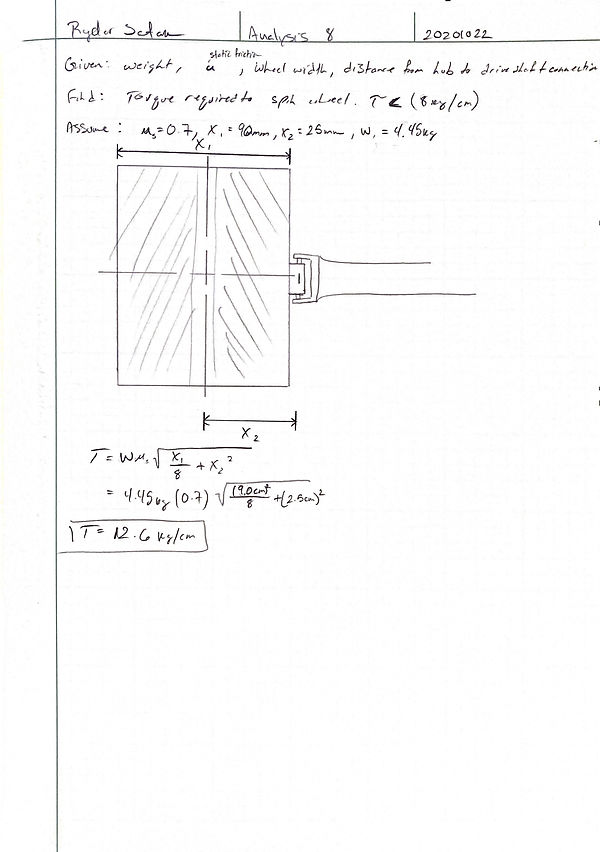 Ryder Satak Analysis 8 20201022
static friction
Given: weight, u, wheel width, distance from hub to drive shaft connection
Find: Torque required to spin wheel. T < (8 kg/cm)
Assume: μs = 0.7, X1 = 90mm, X2 = 25mm, W1 = 4.45kg
X1
X2
T = Wμs √(X1/8 + X2²)
= 4.45kg (0.7) √((9.0cm)²/8 + (2.5cm)²)
T = 12.6 kg/cm